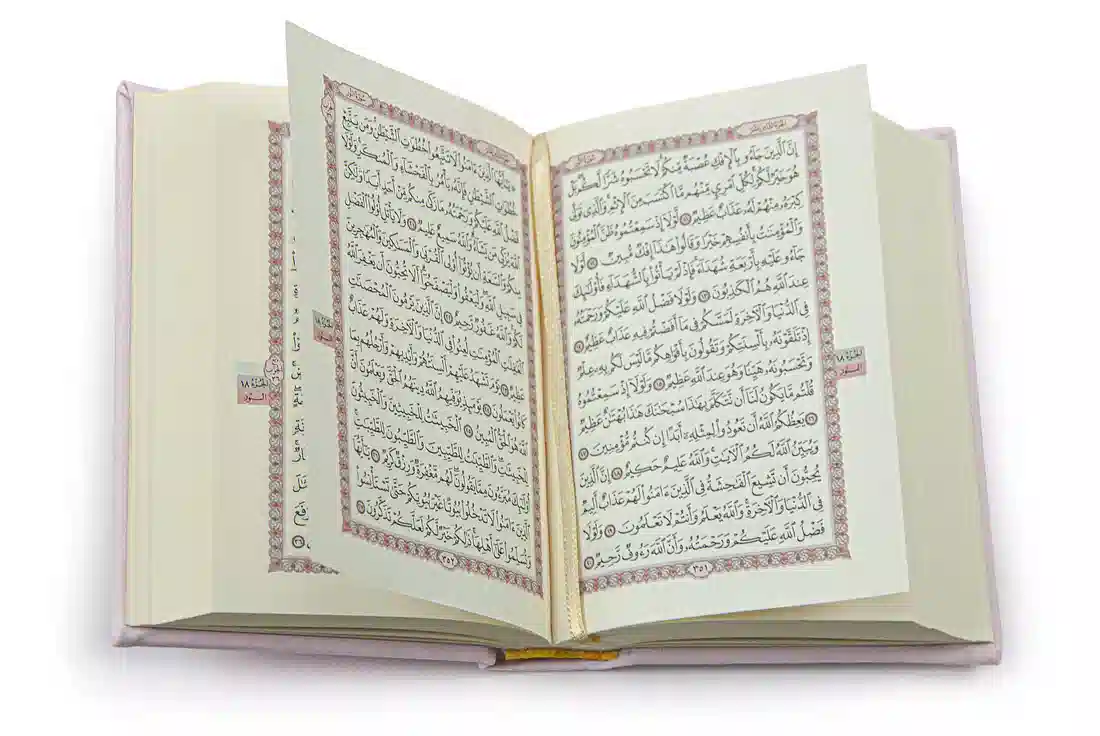 الجزء الثامن عشر
سورة النور
إِنَّ ٱلَّذِينَ جَآءُو بِٱلْإِفْكِ عُصْبَةٌ مِّنكُمْ لَا تَحْسَبُوهُ شَرًّا لَّكُم بَلْ
هُوَ خَيْرٌ لَّكُمْ لِكُلِّ ٱمْرِئٍ مِّنْهُم مَّا ٱكْتَسَبَ مِنَ ٱلْإِثْمِ وَٱلَّذِى تَوَلَّىٰ
كِبْرَهُۥ مِنْهُمْ لَهُۥ عَذَابٌ عَظِيمٌ ١١ لَّوْلَآ إِذْ سَمِعْتُمُوهُ ظَنَّ ٱلْمُؤْمِنُونَ
وَٱلْمُؤْمِنَٰتُ بِأَنفُسِهِمْ خَيْرًا وَقَالُوا۟ هَٰذَآ إِفْكٌ مُّبِينٌ ١٢ لَّوْلَا
جَآءُو عَلَيْهِ بِأَرْبَعَةِ شُهَدَآءَ فَإِذْ لَمْ يَأْتُوا۟ بِٱلشُّهَدَآءِ فَأُو۟لَٰٓئِكَ
عِندَ ٱللَّهِ هُمُ ٱلْكَٰذِبُونَ ١٣ وَلَوْلَا فَضْلُ ٱللَّهِ عَلَيْكُمْ وَرَحْمَتُهُۥ
فِى ٱلدُّنْيَا وَٱلْءَاخِرَةِ لَمَسَّكُمْ فِى مَآ أَفَضْتُمْ فِيهِ عَذَابٌ عَظِيمٌ ١٤
إِذْ تَلَقَّوْنَهُۥ بِأَلْسِنَتِكُمْ وَتَقُولُونَ بِأَفْوَاهِكُم مَّا لَيْسَ لَكُم بِهِۦ عِلْمٌ
وَتَحْسَبُونَهُۥ هَيِّنًا وَهُوَ عِندَ ٱللَّهِ عَظِيمٌ ١٥ وَلَوْلَآ إِذْ سَمِعْتُمُوهُ
قُلْتُم مَّا يَكُونُ لَنَآ أَن نَّتَكَلَّمَ بِهَٰذَا سُبْحَٰنَكَ هَٰذَا بُهْتَٰنٌ عَظِيمٌ
١٦ يَعِظُكُمُ ٱللَّهُ أَن تَعُودُوا۟ لِمِثْلِهِۦٓ أَبَدًا إِن كُنتُم مُّؤْمِنِينَ ١٧
وَيُبَيِّنُ ٱللَّهُ لَكُمُ ٱلْءَايَٰتِ وَٱللَّهُ عَلِيمٌ حَكِيمٌ ١٨ إِنَّ ٱلَّذِينَ
يُحِبُّونَ أَن تَشِيعَ ٱلْفَٰحِشَةُ فِى ٱلَّذِينَ ءَامَنُوا۟ لَهُمْ عَذَابٌ أَلِيمٌ
فِى ٱلدُّنْيَا وَٱلْءَاخِرَةِ وَٱللَّهُ يَعْلَمُ وَأَنتُمْ لَا تَعْلَمُونَ ١٩ وَلَوْلَا
فَضْلُ ٱللَّهِ عَلَيْكُمْ وَرَحْمَتُهُۥ وَأَنَّ ٱللَّهَ رَءُوفٌ رَّحِيمٌ ٢٠
٣٥١
الجزء ١٨
النور
سورة النور
يَٰٓأَيُّهَا ٱلَّذِينَ ءَامَنُوا۟ لَا تَتَّبِعُوا۟ خُطُوَٰتِ ٱلشَّيْطَٰنِ وَمَن يَتَّبِعْ
خُطُوَٰتِ ٱلشَّيْطَٰنِ فَإِنَّهُۥ يَأْمُرُ بِٱلْفَحْشَآءِ وَٱلْمُنكَرِ وَلَوْلَا
فَضْلُ ٱللَّهِ عَلَيْكُمْ وَرَحْمَتُهُۥ مَا زَكَىٰ مِنكُم مِّنْ أَحَدٍ أَبَدًا وَلَٰكِنَّ
ٱللَّهَ يُزَكِّى مَن يَشَآءُ وَٱللَّهُ سَمِيعٌ عَلِيمٌ ٢١ وَلَا يَأْتَلِ أُو۟لُوا۟ ٱلْفَضْلِ
مِنكُمْ وَٱلسَّعَةِ أَن يُؤْتُوٓا۟ أُو۟لِى ٱلْقُرْبَىٰ وَٱلْمَسَٰكِينَ وَٱلْمُهَٰجِرِينَ
فِى سَبِيلِ ٱللَّهِ وَلْيَعْفُوا۟ وَلْيَصْفَحُوٓا۟ أَلَا تُحِبُّونَ أَن يَغْفِرَ ٱللَّهُ
لَكُمْ وَٱللَّهُ غَفُورٌ رَّحِيمٌ ٢٢ إِنَّ ٱلَّذِينَ يَرْمُونَ ٱلْمُحْصَنَٰتِ
ٱلْغَٰفِلَٰتِ ٱلْمُؤْمِنَٰتِ لُعِنُوا۟ فِى ٱلدُّنْيَا وَٱلْءَاخِرَةِ وَلَهُمْ عَذَابٌ
عَظِيمٌ ٢٣ يَوْمَ تَشْهَدُ عَلَيْهِمْ أَلْسِنَتُهُمْ وَأَيْدِيهِمْ وَأَرْجُلُهُم بِمَا
كَانُوا۟ يَعْمَلُونَ ٢٤ يَوْمَئِذٍ يُوَفِّيهِمُ ٱللَّهُ دِينَهُمُ ٱلْحَقَّ وَيَعْلَمُونَ أَنَّ
ٱللَّهَ هُوَ ٱلْحَقُّ ٱلْمُبِينُ ٢٥ ٱلْخَبِيثَٰتُ لِلْخَبِيثِينَ وَٱلْخَبِيثُونَ
لِلْخَبِيثَٰتِ وَٱلطَّيِّبَٰتُ لِلطَّيِّبِينَ وَٱلطَّيِّبُونَ لِلطَّيِّبَٰتِ
أُو۟لَٰٓئِكَ مُبَرَّءُونَ مِمَّا يَقُولُونَ لَهُم مَّغْفِرَةٌ وَرِزْقٌ كَرِيمٌ ٢٦ يَٰٓأَيُّهَا
ٱلَّذِينَ ءَامَنُوا۟ لَا تَدْخُلُوا۟ بُيُوتًا غَيْرَ بُيُوتِكُمْ حَتَّىٰ تَسْتَأْنِسُوا۟
وَتُسَلِّمُوا۟ عَلَىٰٓ أَهْلِهَا ذَٰلِكُمْ خَيْرٌ لَّكُمْ لَعَلَّكُمْ تَذَكَّرُونَ ٢٧
٣٥٢
الجزء ١٨
النور